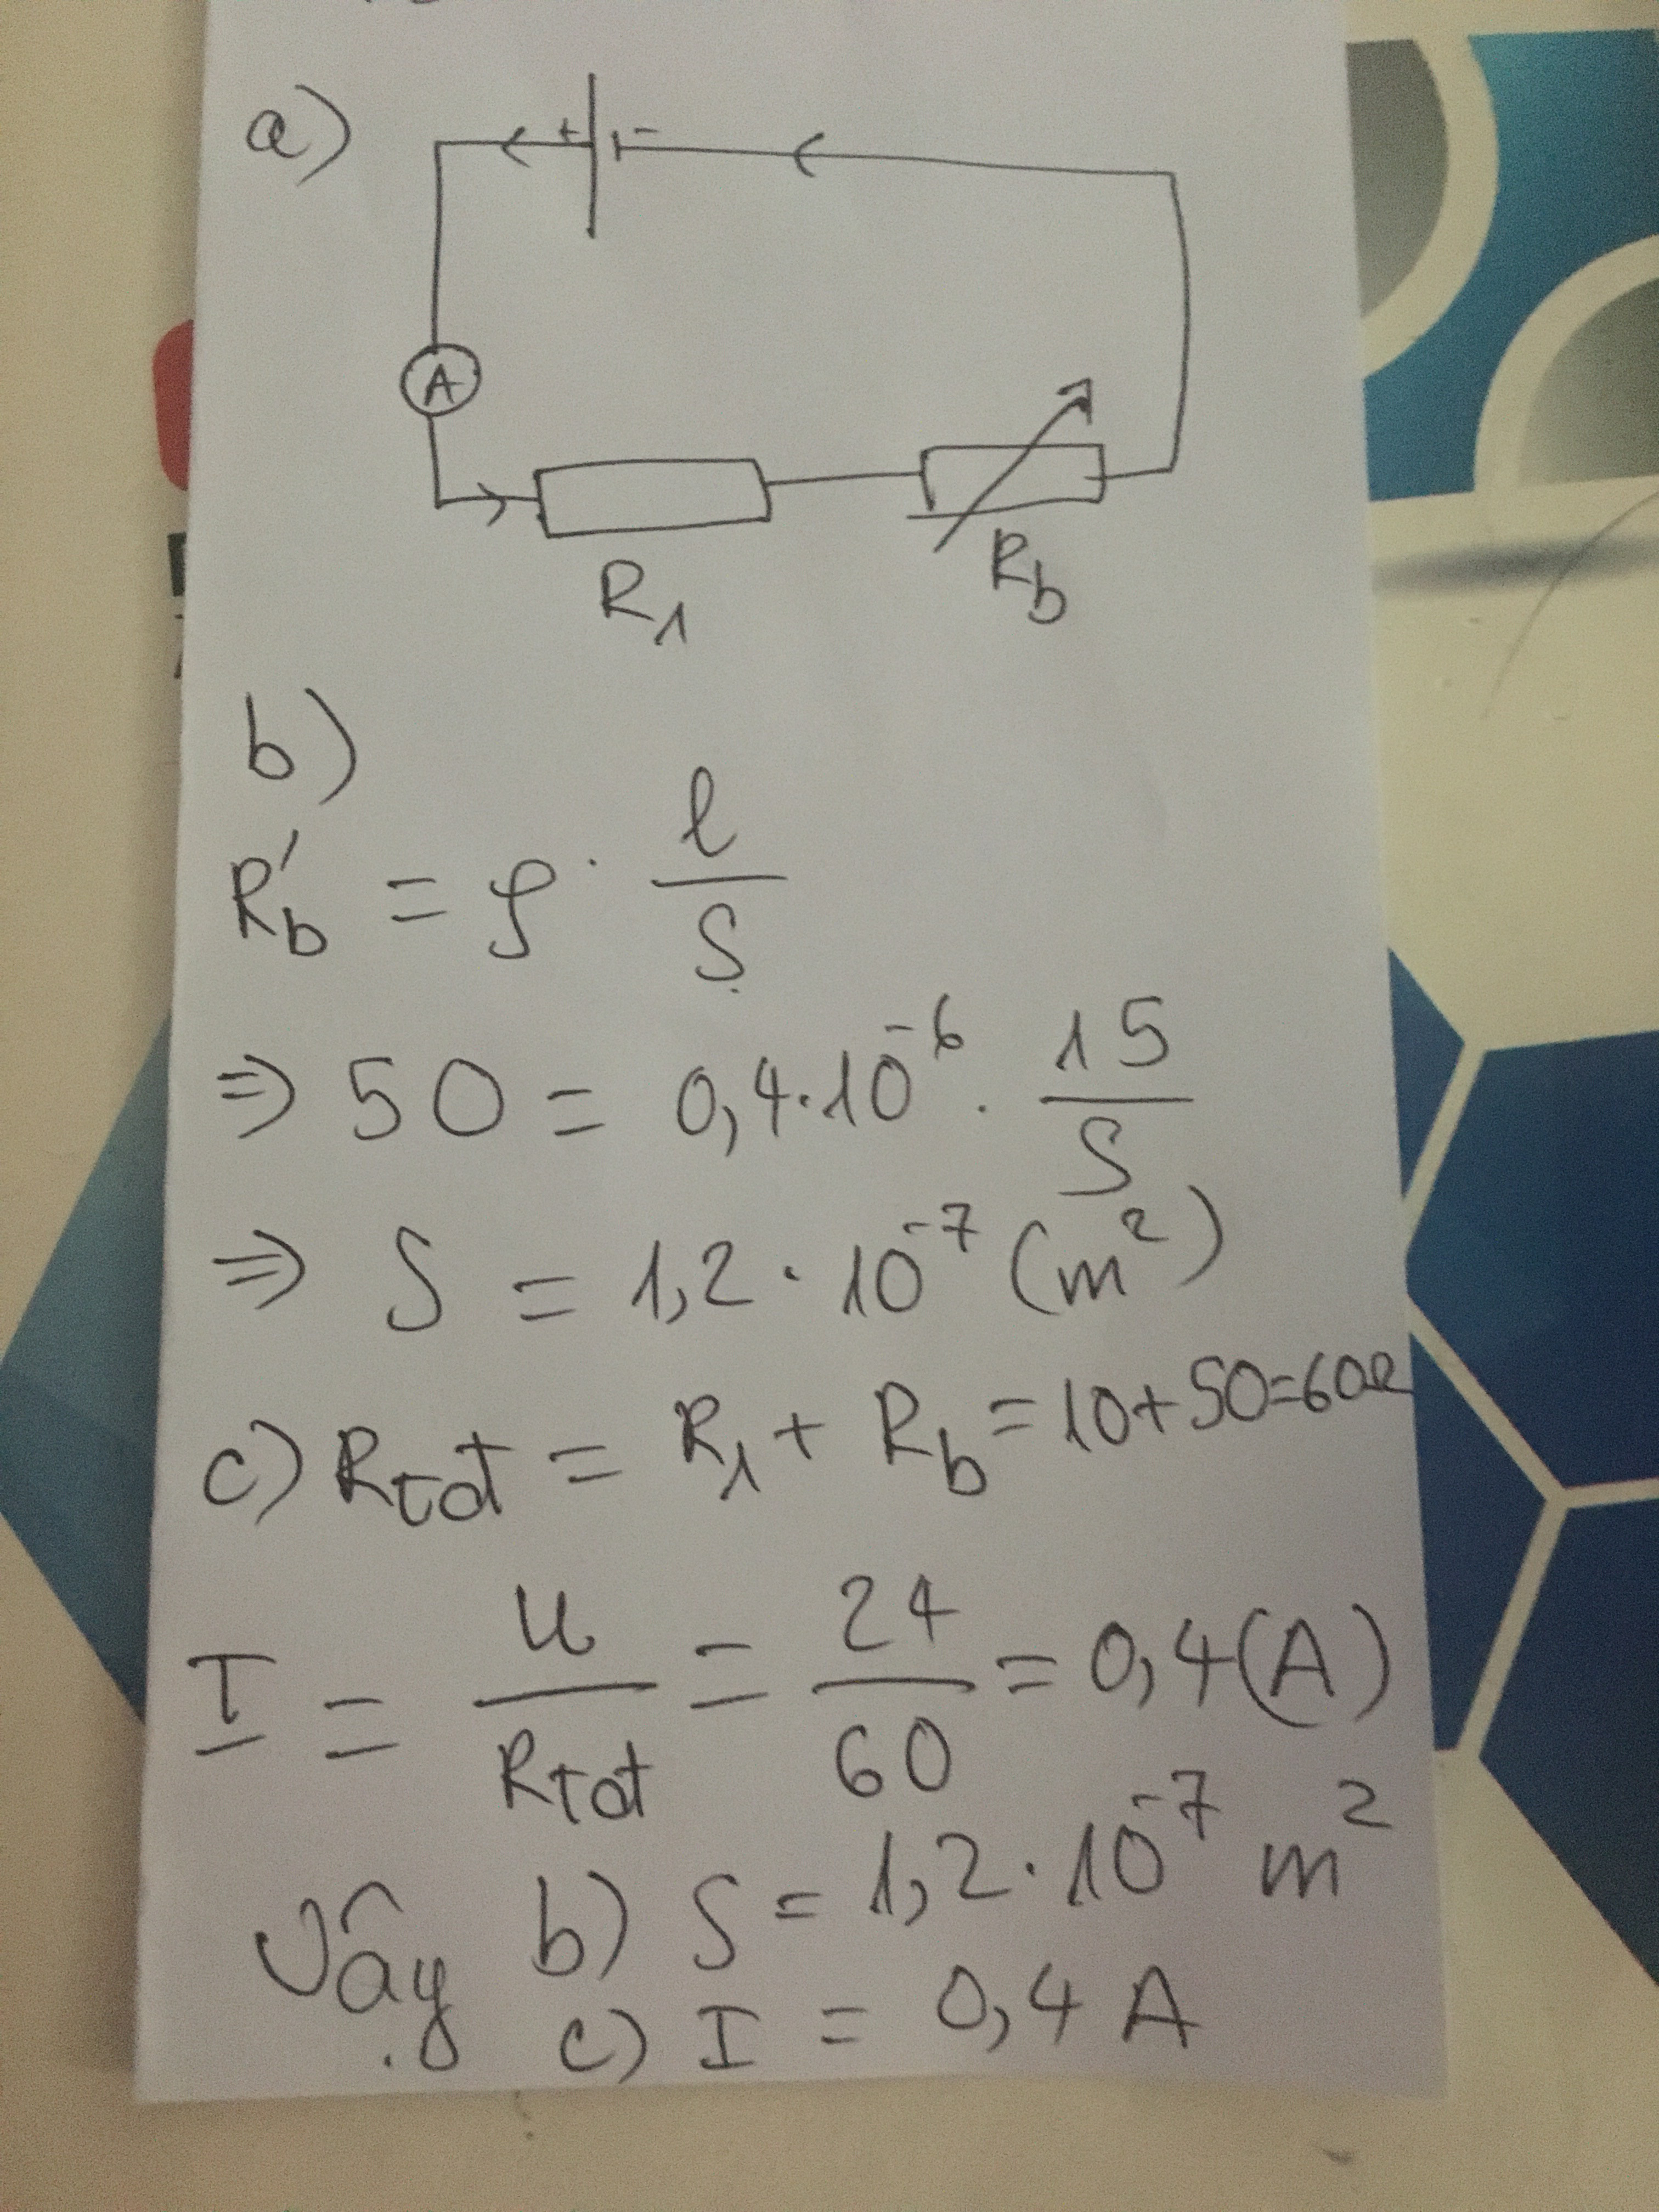 a)
+ -
A
R₁
R_b
b)
R'_b = ρ · l/S
⇒ 50 = 0,4·10⁻⁶ · 15/S
⇒ S = 1,2·10⁻⁷ (m²)
c) Rtot = R₁ + R_b = 10+50=60Ω
I = U/Rtot = 24/60 = 0,4(A)
Vậy b) S = 1,2·10⁻⁷ m²
c) I = 0,4 A